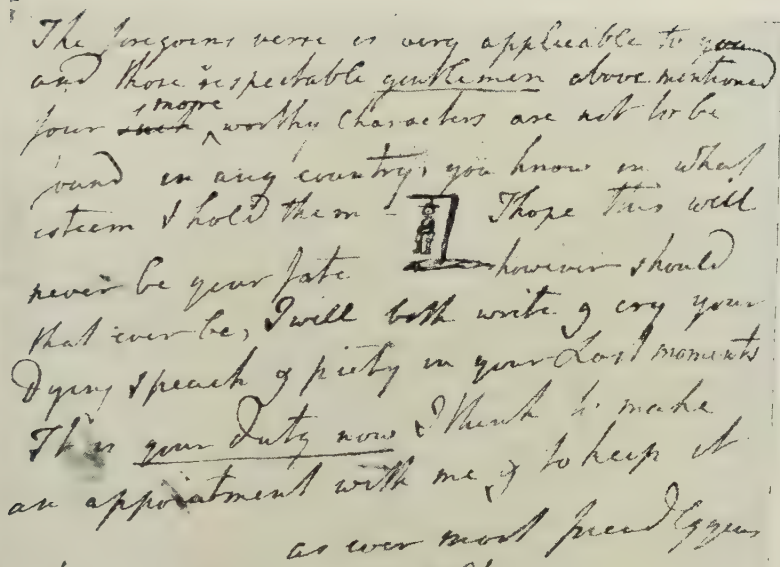 The foregoing verse is very applicable to you
and those respectable gentlemen above mentioned
four such more worthy Characters are not to be
ound in any country, you know in what
esteem I hold them – I hope this will
never be your fate however should
that ever be, I will both write & cry your
Dying Speach & piety in your Last moments
It is your Duty now I think to make
an appointment with me, & to keep it
as ever most